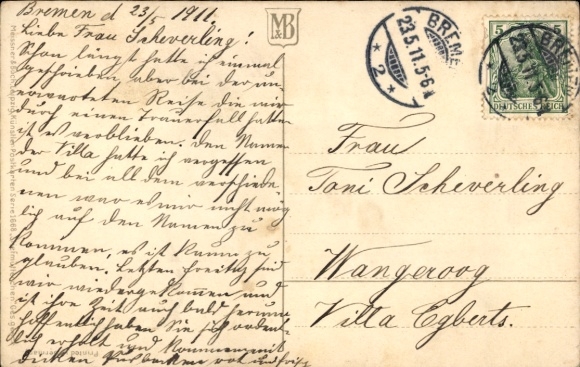 Bremen d 23/5 1911.
Liebe Frau Scheverling!
Schon längst hatte ich einmal
geschrieben aber bei der un
erwarteten Reise die wir
durch einen Trauerfall hatten
ist es verblieben. Den Namen
der Villa hatte ich vergessen
und bei all dem verschiede
nen war es mir nicht mög
lich auf den Namen zu
kommen, es ist kaum zu
glauben. Letzten Freitag sind
wir wiedergekommen und
ist ihre Zeit auch bald herum
hoffentlich haben Sie sich ordent
lich erholt und kommen mit
dicken Backen rot und frisch
M
B
BREMEN
23.5.11.5-6
* 2 *
5
DEUTSCHES REICH
BREMEN
23.5.11.5-6
Frau
Toni Scheverling
Wangeroog
Villa Egberts.